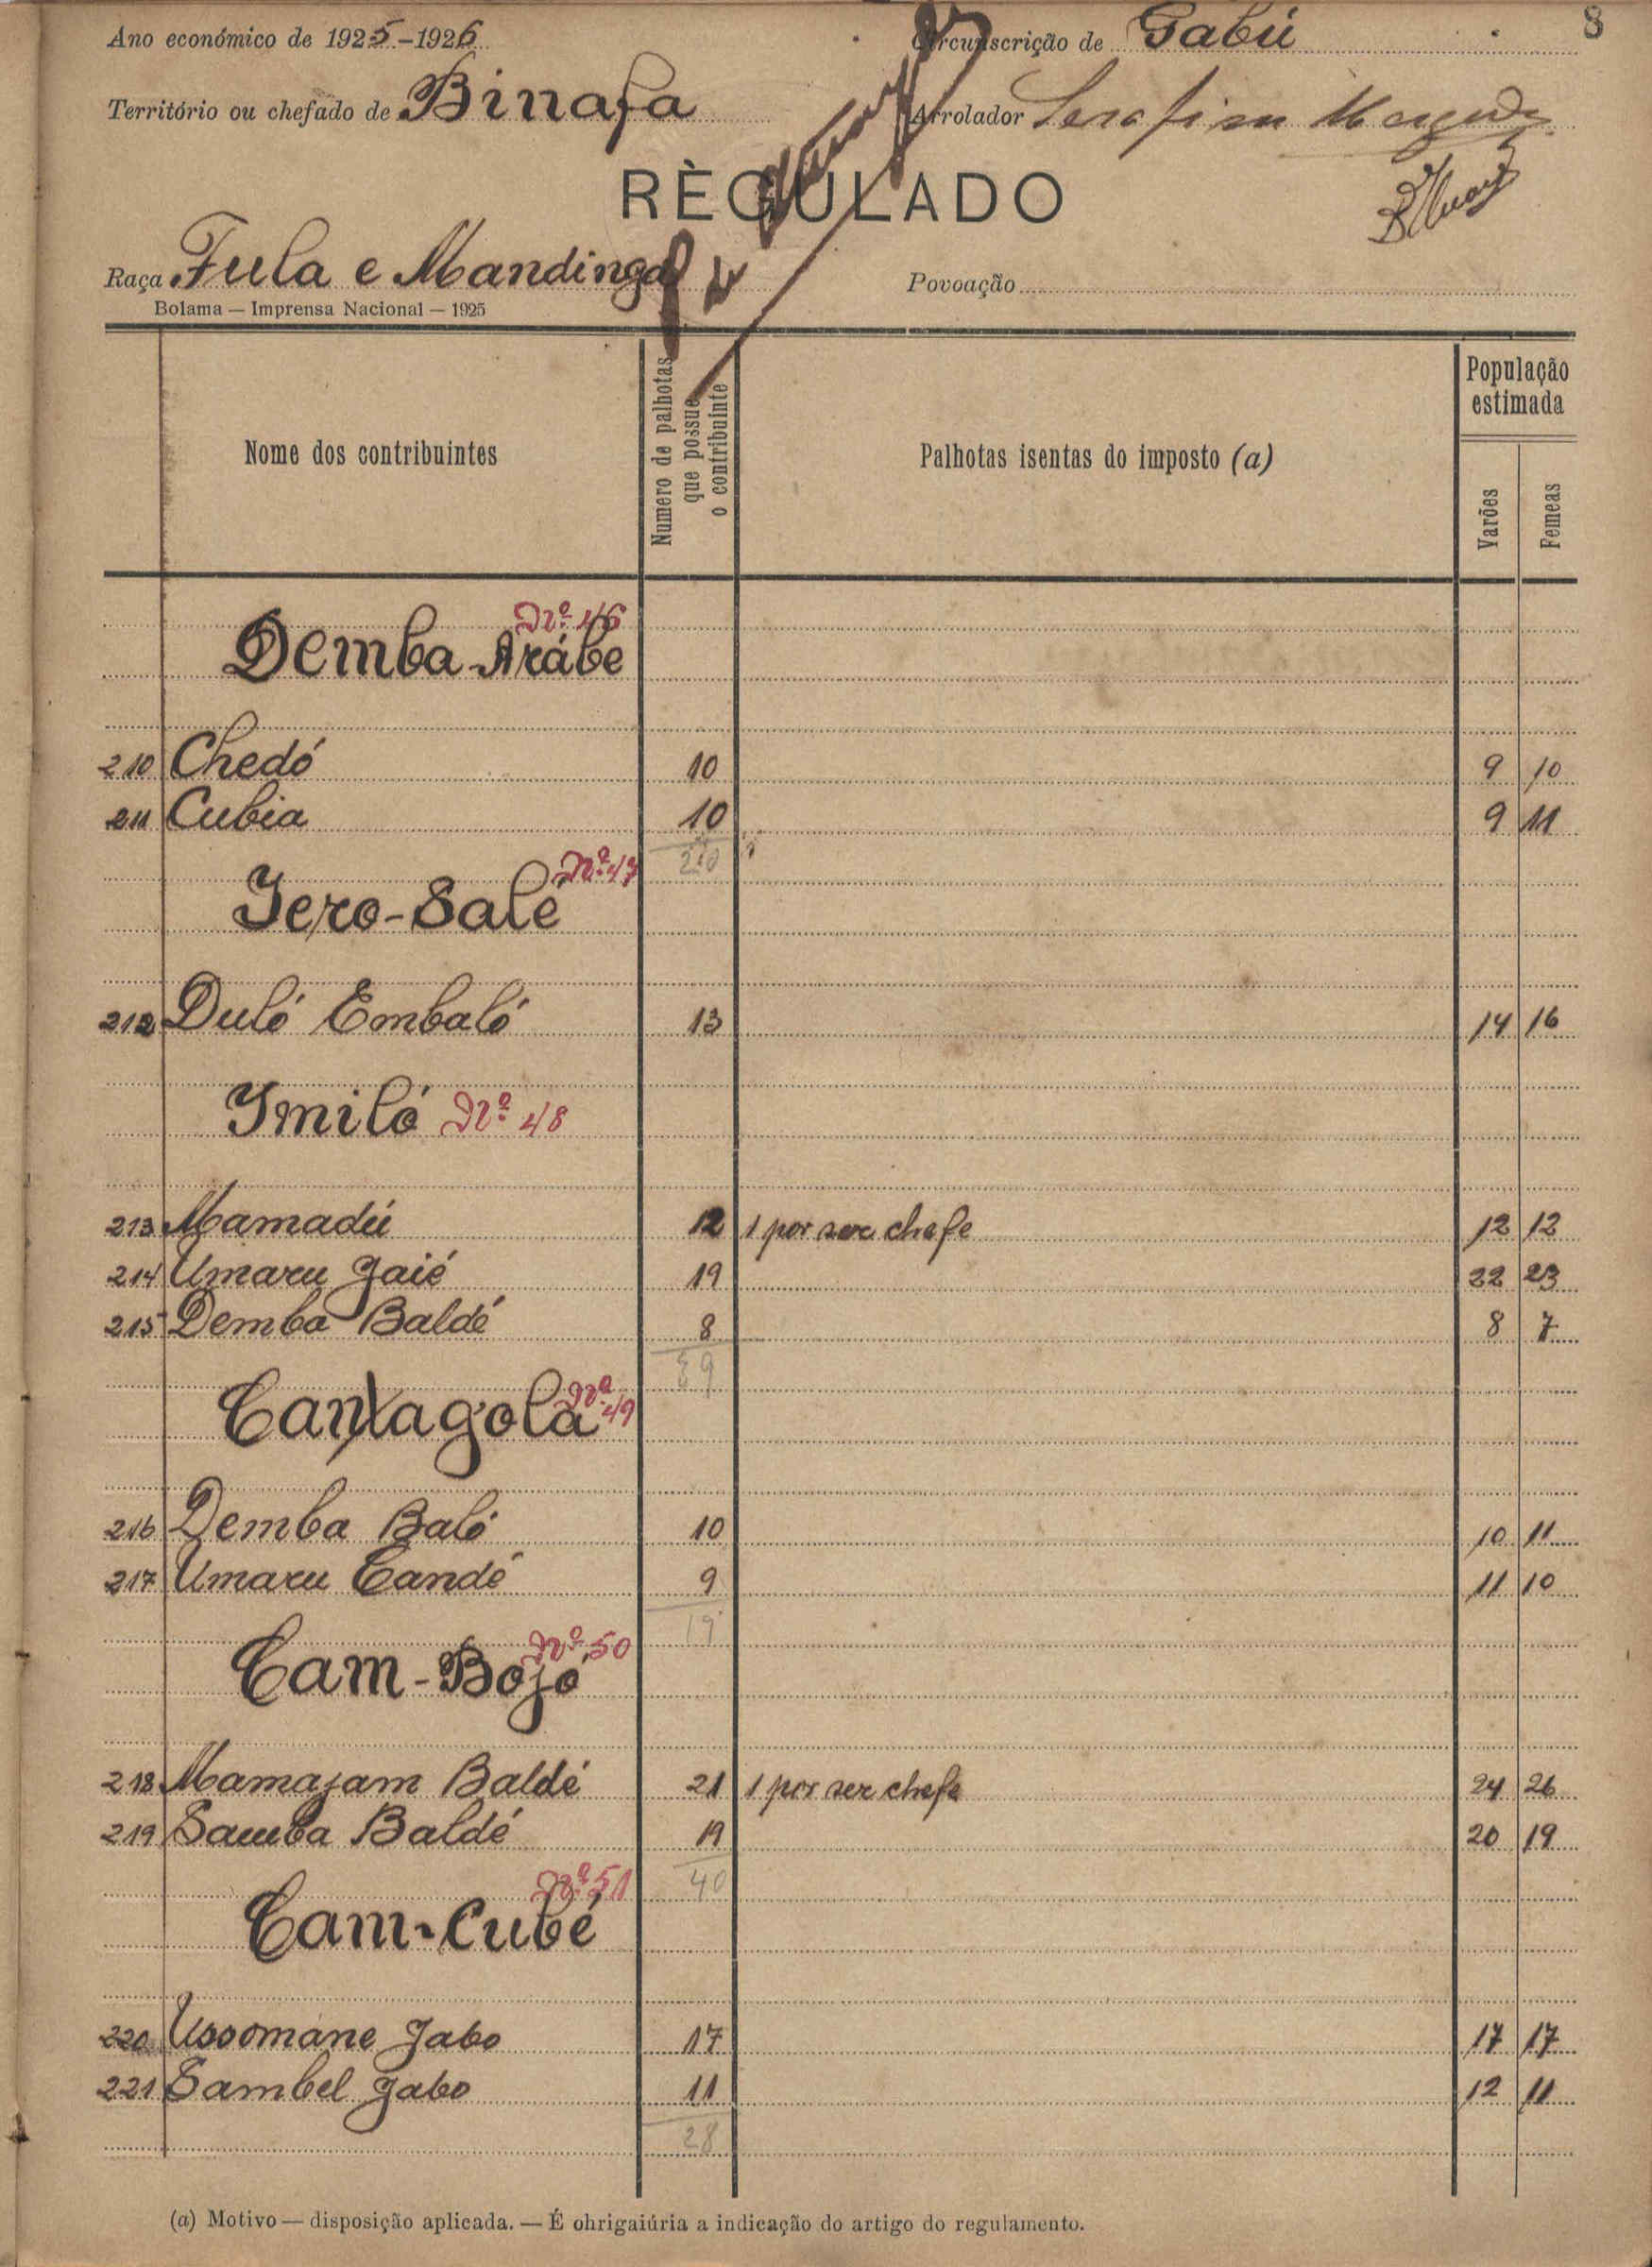 8
Ano económico de 1925-1926
Circunscrição de Gabú
Território ou chefado de Binafa
Arrolador Serafim
RÈGULADO
Raça Fula e Mandinga
Povoação
Bolama — Imprensa Nacional — 1925
Nome dos contribuintes
Numero de palhotas que possue o contribuinte
Palhotas isentas do imposto (a)
População estimada
Varões
Femeas
Nº 46
Demba Arábe
210 Chedó 10 9 10
211 Cubia 10 9 11
20
Nº 47
Jero-Salé
212 Duló Embaló 13 14 16
Imiló Nº 48
213 Mamadú 12 1 por ser chefe 12 12
214 Umaru Jaié 19 22 23
215 Demba Baldé 8 8 7
39
Nº 49
216 Demba Baló 10 10 11
217 Umaru Candé 9 11 10
19
Nº 50
Cam-Bojó
218 Mamajam Baldé 21 1 por ser chefe 24 26
219 Samba Baldé 19 20 19
40
Nº 51
Cam-Cubé
220 Ussomane Jabo 17 17 17
221 Sambel Jabo 11 12 11
28
(a) Motivo — disposição aplicada. — É ohrigaiúria a indicação do artigo do regulamento.